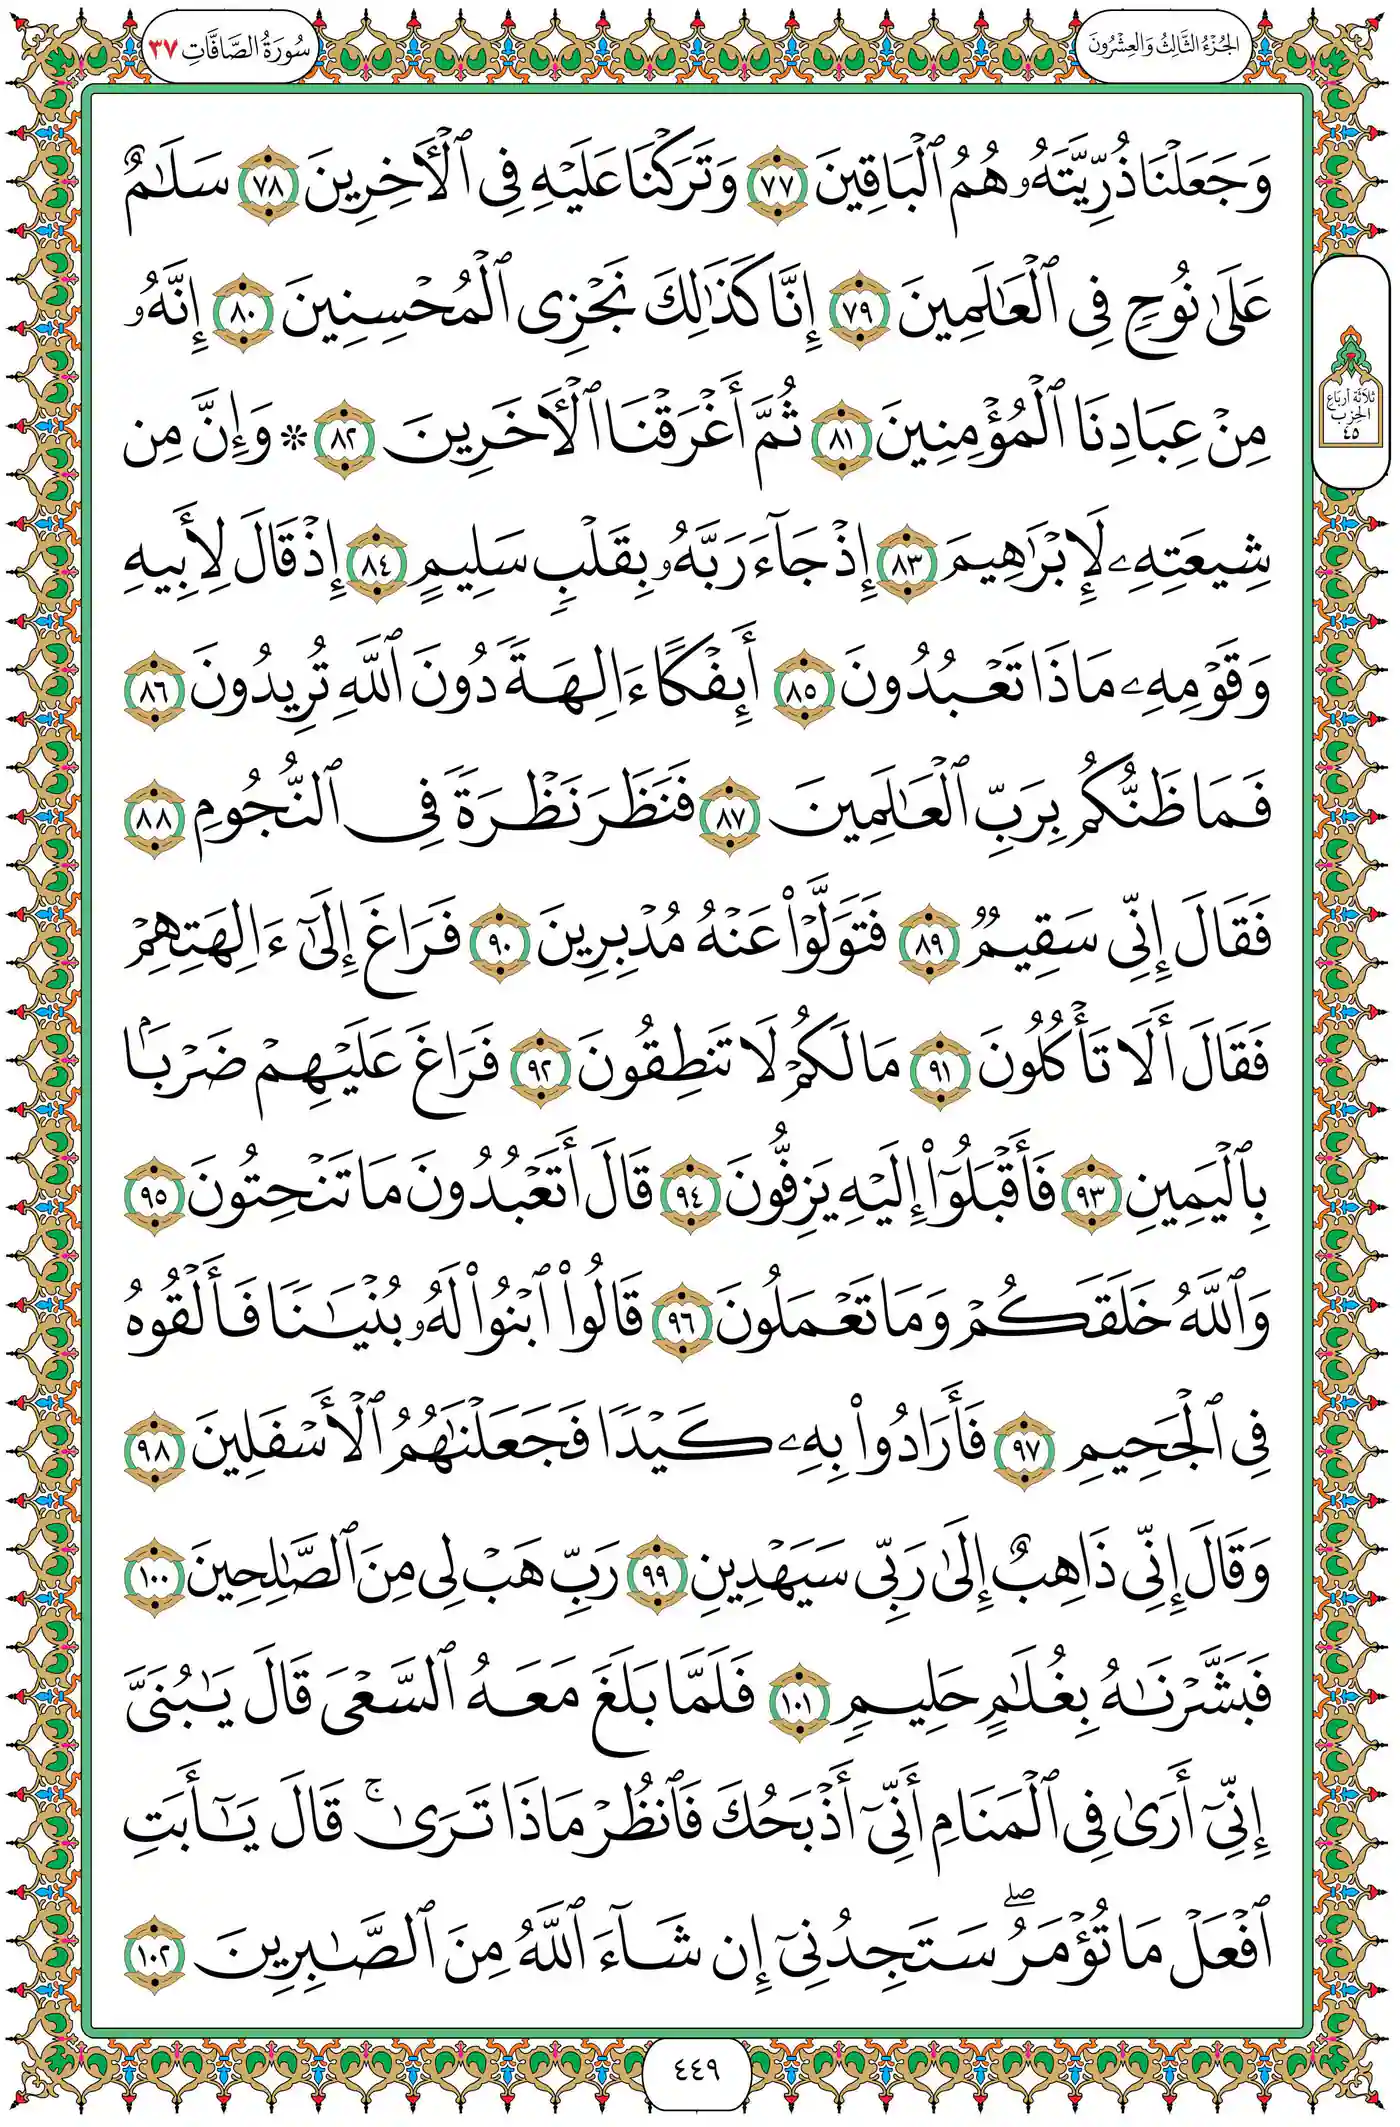 الجُزْءُ الثَّالِثُ وَالعِشْرُونَ
سُورَةُ الصَّافَّاتِ ٣٧
وَجَعَلْنَا ذُرِّيَّتَهُۥ هُمُ ٱلْبَاقِينَ ٧٧ وَتَرَكْنَا عَلَيْهِ فِى ٱلْـَٔاخِرِينَ ٧٨ سَلَـٰمٌ
عَلَىٰ نُوحٍ فِى ٱلْعَـٰلَمِينَ ٧٩ إِنَّا كَذَٰلِكَ نَجْزِى ٱلْمُحْسِنِينَ ٨٠ إِنَّهُۥ
مِنْ عِبَادِنَا ٱلْمُؤْمِنِينَ ٨١ ثُمَّ أَغْرَقْنَا ٱلْـَٔاخَرِينَ ٨٢ * وَإِنَّ مِن
شِيعَتِهِۦ لَإِبْرَٰهِيمَ ٨٣ إِذْ جَآءَ رَبَّهُۥ بِقَلْبٍ سَلِيمٍ ٨٤ إِذْ قَالَ لِأَبِيهِ
وَقَوْمِهِۦ مَاذَا تَعْبُدُونَ ٨٥ أَئِفْكًا ءَالِهَةً دُونَ ٱللَّهِ تُرِيدُونَ ٨٦
فَمَا ظَنُّكُم بِرَبِّ ٱلْعَـٰلَمِينَ ٨٧ فَنَظَرَ نَظْرَةً فِى ٱلنُّجُومِ ٨٨
فَقَالَ إِنِّى سَقِيمٌ ٨٩ فَتَوَلَّوْا۟ عَنْهُ مُدْبِرِينَ ٩٠ فَرَاغَ إِلَىٰٓ ءَالِهَتِهِمْ
فَقَالَ أَلَا تَأْكُلُونَ ٩١ مَا لَكُمْ لَا تَنطِقُونَ ٩٢ فَرَاغَ عَلَيْهِمْ ضَرْبًۢا
بِٱلْيَمِينِ ٩٣ فَأَقْبَلُوٓا۟ إِلَيْهِ يَزِفُّونَ ٩٤ قَالَ أَتَعْبُدُونَ مَا تَنْحِتُونَ ٩٥
وَٱللَّهُ خَلَقَكُمْ وَمَا تَعْمَلُونَ ٩٦ قَالُوا۟ ٱبْنُوا۟ لَهُۥ بُنْيَـٰنًا فَأَلْقُوهُ
فِى ٱلْجَحِيمِ ٩٧ فَأَرَادُوا۟ بِهِۦ كَيْدًا فَجَعَلْنَـٰهُمُ ٱلْأَسْفَلِينَ ٩٨
وَقَالَ إِنِّى ذَاهِبٌ إِلَىٰ رَبِّى سَيَهْدِينِ ٩٩ رَبِّ هَبْ لِى مِنَ ٱلصَّـٰلِحِينَ ١٠٠
فَبَشَّرْنَـٰهُ بِغُلَـٰمٍ حَلِيمٍ ١٠١ فَلَمَّا بَلَغَ مَعَهُ ٱلسَّعْىَ قَالَ يَـٰبُنَىَّ
إِنِّىٓ أَرَىٰ فِى ٱلْمَنَامِ أَنِّىٓ أَذْبَحُكَ فَٱنظُرْ مَاذَا تَرَىٰ ۚ قَالَ يَـٰٓأَبَتِ
ٱفْعَلْ مَا تُؤْمَرُ ۖ سَتَجِدُنِىٓ إِن شَآءَ ٱللَّهُ مِنَ ٱلصَّـٰبِرِينَ ١٠٢
ثلاثة أرباع
الحزب
٤٥
٤٤٩